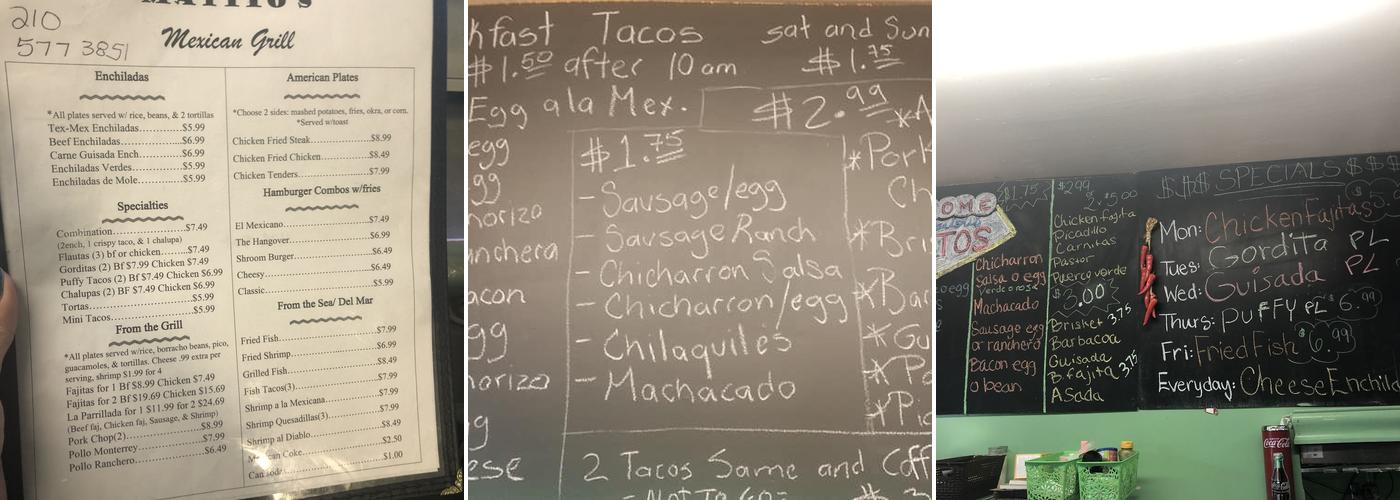 210
577 3851
Mexican Grill
Enchiladas
*All plates served w/ rice, beans, & 2 tortillas
Tex-Mex Enchiladas............$5.99
Beef Enchiladas................$6.99
Carne Guisada Ench............$6.99
Enchiladas Verdes..............$5.99
Enchiladas de Mole.............$5.99
Specialties
Combination....................$7.49
(2ench, 1 crispy taco, & 1 chalupa)
Flautas (3) bf or chicken........$7.49
Gorditas (2) Bf $7.99 Chicken $7.49
Puffy Tacos (2) Bf $7.49 Chicken $6.99
Chalupas (2) BF $7.49 Chicken $6.99
Tortas..........................$5.99
Mini Tacos.....................$5.99
From the Grill
*All plates served w/rice, borracho beans, pico,
guacamoles, & tortillas. Cheese .99 extra per
serving, shrimp $1.99 for 4
Fajitas for 1 Bf $8.99 Chicken $7.49
Fajitas for 2 Bf $19.69 Chicken $15.69
La Parrillada for 1 $11.99 for 2 $24.69
(Beef faj, Chicken faj, Sausage, & Shrimp)
Pork Chop(2)....................$8.99
Pollo Monterrey................$7.99
Pollo Ranchero.................$6.49
American Plates
*Choose 2 sides: mashed potatoes, fries, okra, or corn.
*Served w/toast
Chicken Fried Steak..............$8.99
Chicken Fried Chicken...........$8.49
Chicken Tenders..................$7.99
Hamburger Combos w/fries
El Mexicano......................$7.49
The Hangover....................$6.99
Shroom Burger...................$6.49
Cheesy...........................$6.49
Classic...........................$5.99
From the Sea/ Del Mar
Fried Fish........................$7.99
Fried Shrimp.....................$6.99
Grilled Fish......................$8.49
Fish Tacos(3)....................$7.99
Shrimp a la Mexicana............$7.99
Shrimp Quesadillas(3)...........$7.99
Shrimp al Diablo.................$8.49
Mexican Coke....................$2.50
$1.00
kfast Tacos sat and Sun
$1.50 after 10am $1.75
Egg ala Mex. $2.99
egg
$1.75
- Sausage/egg
- Sausage Ranch
- Chicharron Salsa
- Chicharron/egg
- Chilaquiles
- Machacado
horizo
nchera
acon
gg
horizo
ese
*Pork
Ch
*Bri
*Bar
*Gu
*Pic
2 Tacos Same and Coff
- Not To Go=
OME
TOS
$1.75
Chicharron
Salsa o egg
Verde o rosa
Machacado
Sausage egg
o ranchero
Bacon egg
o bean
$2.99
2, 5.00
Chicken fajita
Picadillo
Carnitas
Pastor
Puerco verde
$3.00
Brisket 3.75
Barbacoa
Guisada
B. fajita 3.75
Asada
$$$ SPECIALS $$$
Mon: Chicken Fajitas
Tues: Gordita PL
Wed: Guisada PL
Thurs: Puffy PL $6.99
Fri: Fried Fish $6.99
Everyday: Cheese Enchil
Coca-Cola